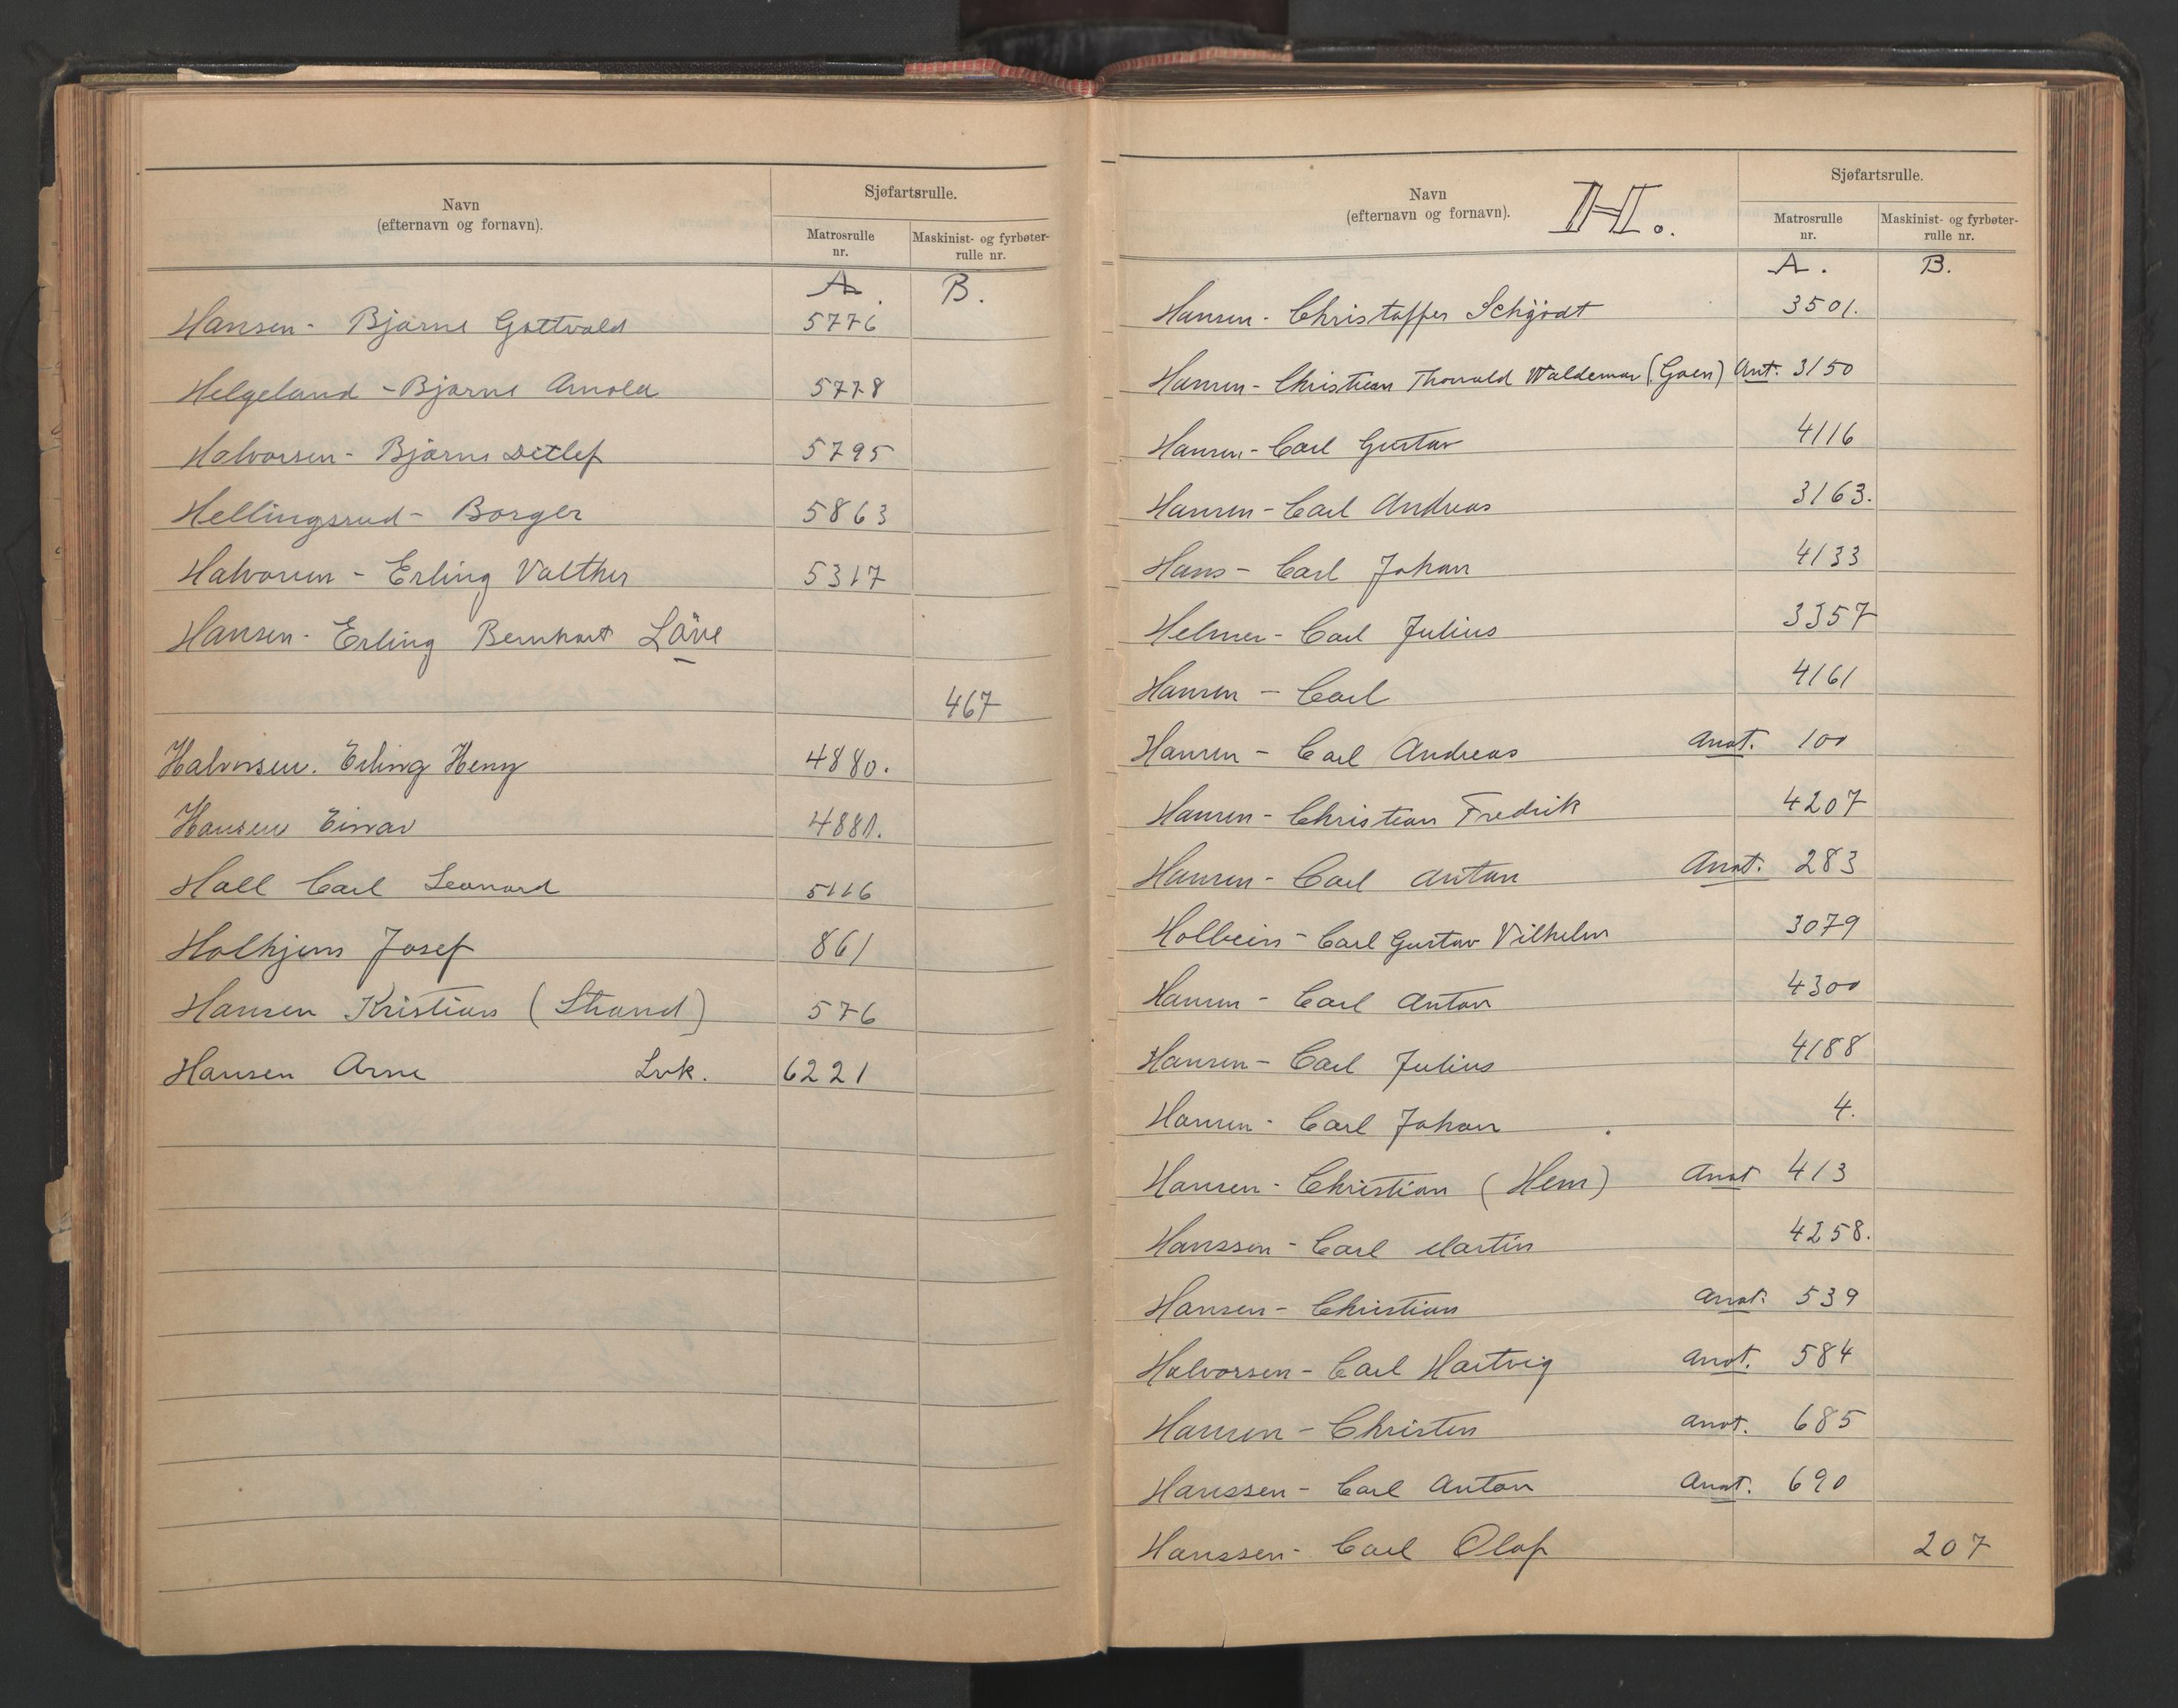 Navn
(efternavn og fornavn).
Sjøfartsrulle.
Matrosrulle
nr.
Maskinist- og fyrbøter-
rulle nr.
A. B.
Hansen - Bjarne Gottvald 5776
Helgeland - Bjarne Arnold 5778
Halvorsen - Bjarne Ditlef 5795
Hellingsrud - Borger 5863
Halvorsen - Erling Valther 5317
Hansen - Erling Bernhart Löve
467
Halvorsen. Erling Henry 4880.
Hansen Einar 4881.
Hall Carl Leonard 5116
Holhjem Josef 861
Hansen Kristian (Strand) 576
Hansen Arne Lvk. 6221
Navn
(efternavn og fornavn).
H.
Sjøfartsrulle.
Matrosrulle
nr.
Maskinist- og fyrbøter-
rulle nr.
A. B.
Hansen - Christoffer Schjödt 3501.
Hansen - Christian Thorvald Waldemar (Goen) Ant. 3150
Hansen - Carl Gustav 4116
Hansen - Carl Andreas 3163.
Hans - Carl Johan 4133
Helmer - Carl Julius 3357
Hansen - Carl 4161
Hansen - Carl Andreas Anot. 100
Hansen - Christian Fredrik 4207
Hansen - Carl Anton Anot. 283
Holbein - Carl Gustav Vilhelm 3079
Hansen - Carl Anton 4300
Hansen - Carl Julius 4188
Hansen - Carl Johan 4.
Hansen - Christian (Hem) Anot 413
Hanssen - Carl Martin 4258.
Hansen - Christian Anot. 539
Halvorsen - Carl Hartvig Anot. 584
Hansen - Christen Anot. 685
Hanssen - Carl Anton Anot. 690
Hanssen - Carl Olaf 207